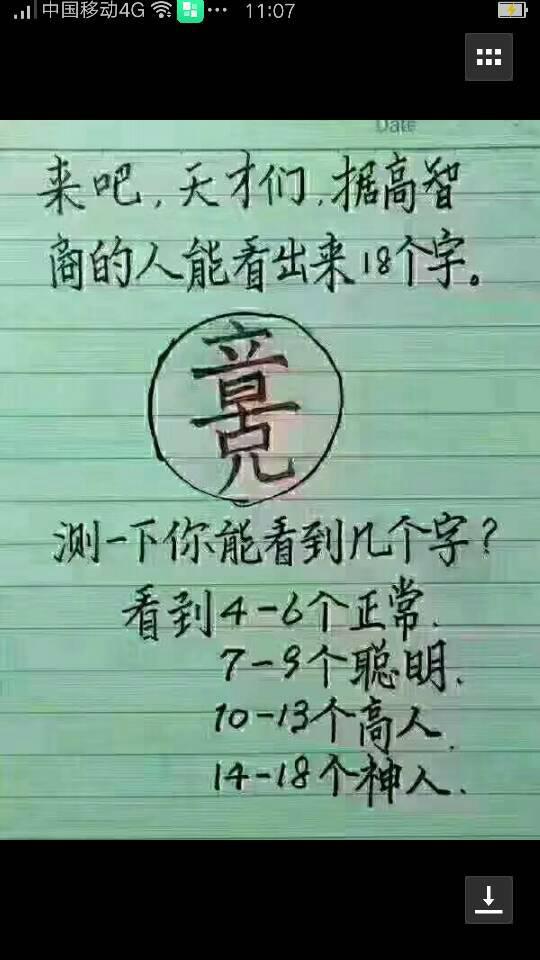 中国移动4G ··· 11:07
Date
来吧，天才们，据高智
商的人能看出来18个字。
竟
测一下你能看到几个字？
看到4-6个正常.
7-9个聪明.
10-13个高人.
14-18个神人.